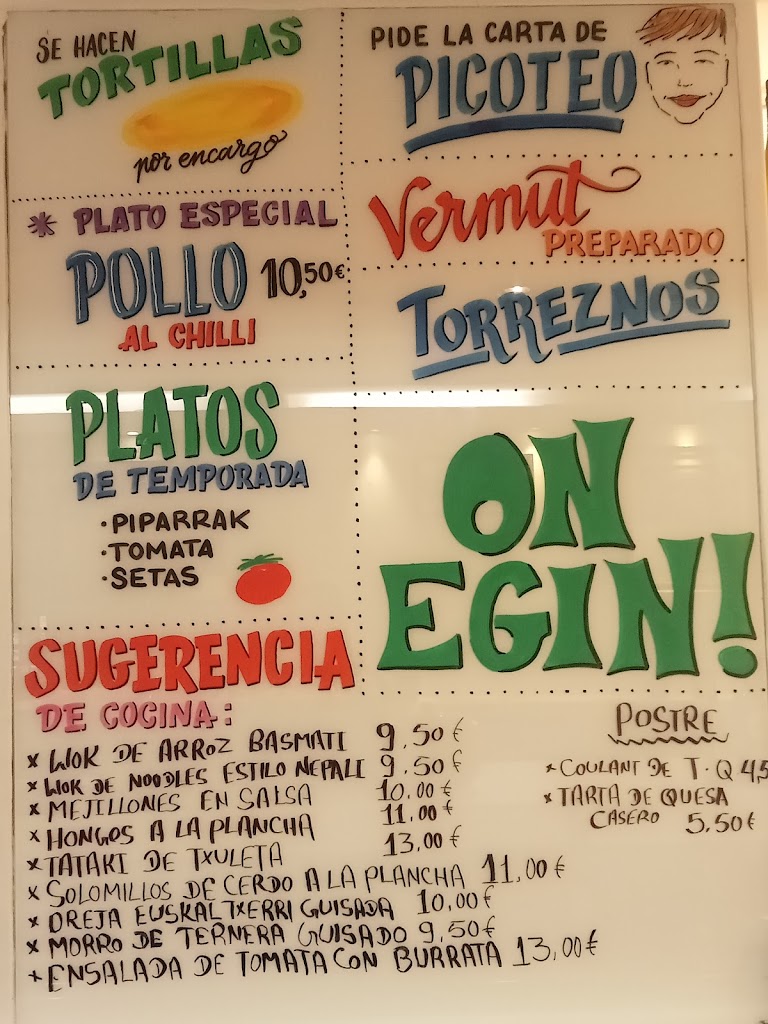 SE HACEN
TORTILLAS
por encargo
PIDE LA CARTA DE
PICOTEO
* PLATO ESPECIAL
POLLO 10,50€
AL CHILLI
Vermut
PREPARADO
TORREZNOS
PLATOS
DE TEMPORADA
· PIPARRAK
· TOMATA
· SETAS
ON
EGIN!
SUGERENCIA
DE COCINA:
x WOK DE ARROZ BASMATI 9.50€
x WOK DE NOODLES ESTILO NEPALI 9.50€
x MEJILLONES EN SALSA 10.00€
x HONGOS A LA PLANCHA 11.00€
x TATAKI DE TXULETA 13,00€
x SOLOMILLOS DE CERDO A LA PLANCHA 11,00€
x OREJA EUSKAL TXERRI GUISADA 10,00€
x MORRO DE TERNERA GUISADO 9,50€
+ ENSALADA DE TOMATA CON BURRATA 13,00€
POSTRE
x COULANT DE T.Q 4,5
x TARTA DE QUESA
CASERO 5,50€